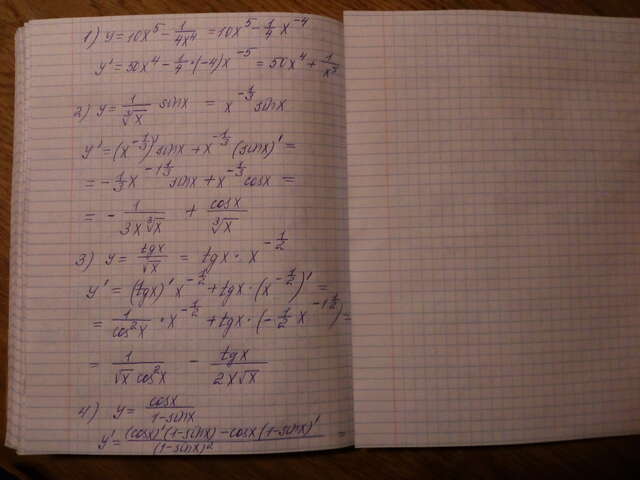 1) y=10x⁵-1/(4x⁴)=10x⁵-1/4 x⁻⁴
y'=50x⁴-1/4·(-4)x⁻⁵=50x⁴+1/x⁵
2) y=1/∛x sinx = x^(-1/3) sinx
y'=(x^(-1/3))' sinx+x^(-1/3) (sinx)'=
=-1/3 x^(-1 1/3) sinx+x^(-1/3) cosx =
=-1/(3x∛x) + cosx/∛x
3) y=tgx/√x = tgx·x^(-1/2)
y'=(tgx)' x^(-1/2)+tgx·(x^(-1/2))'=
=1/cos²x·x^(-1/2)+tgx·(-1/2 x^(-1 1/2))=
=1/(√x cos²x) - tgx/(2x√x)
4) y=cosx/(1-sinx)
y'=((cosx)'(1-sinx)-cosx(1-sinx)')/(1-sinx)² =